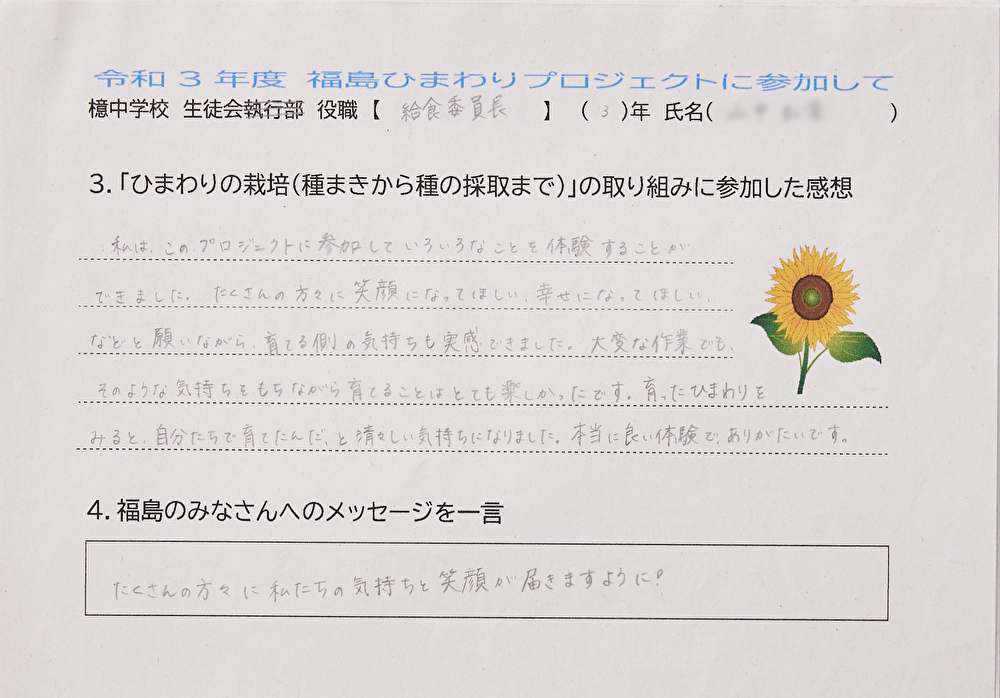 令和3年度 福島ひまわりプロジェクトに参加して
檍中学校 生徒会執行部 役職【 給食委員長 】 (3)年 氏名( )
3.「ひまわりの栽培(種まきから種の採取まで)」の取り組みに参加した感想
私は、このプロジェクトに参加していろいろなことを体験することが
できました。たくさんの方々に笑顔になってほしい、幸せになってほしい、
などと願いながら、育てる側の気持ちも実感できました。大変な作業でも、
そのような気持ちをもちながら育てることはとても楽しかったです。育ったひまわりを
みると、自分たちで育てたんだ、と清々しい気持ちになりました。本当に良い体験で、ありがたいです。
4.福島のみなさんへのメッセージを一言
たくさんの方々に私たちの気持ちと笑顔が届きますように!